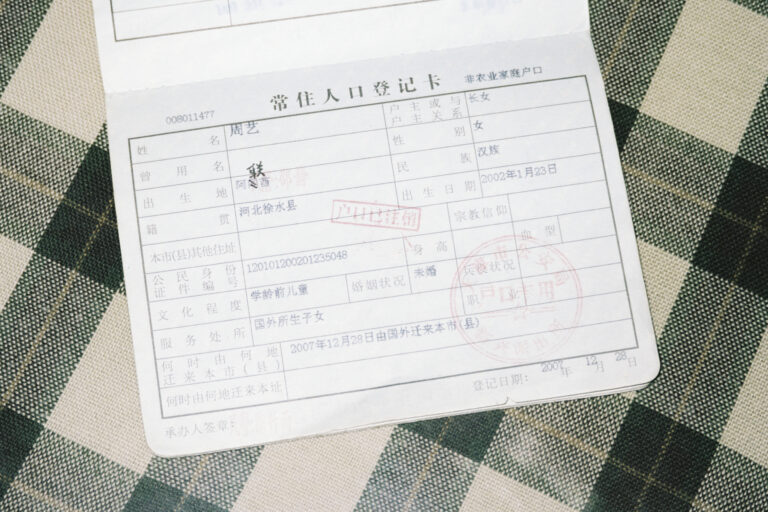 常住人口登记卡
008011477
非农业家庭户口
姓名
周艺
户主或与
户主关系
长女
曾用名
性别
女
出生地
阿联酋
民族
汉族
籍贯
河北徐水县
出生日期
2002年1月23日
本市(县)其他住址
户口已注销
宗教信仰
公民身份
证件编号
120101200201235048
身高
血型
文化程度
学龄前儿童
婚姻状况
未婚
兵役状况
服务处所
国外所生子女
职业
何时由何地
迁来本市(县)
2007年12月28日由国外迁来本市(县)
何时由何地迁来本址
承办人签章:
登记日期: 2007年12月28日